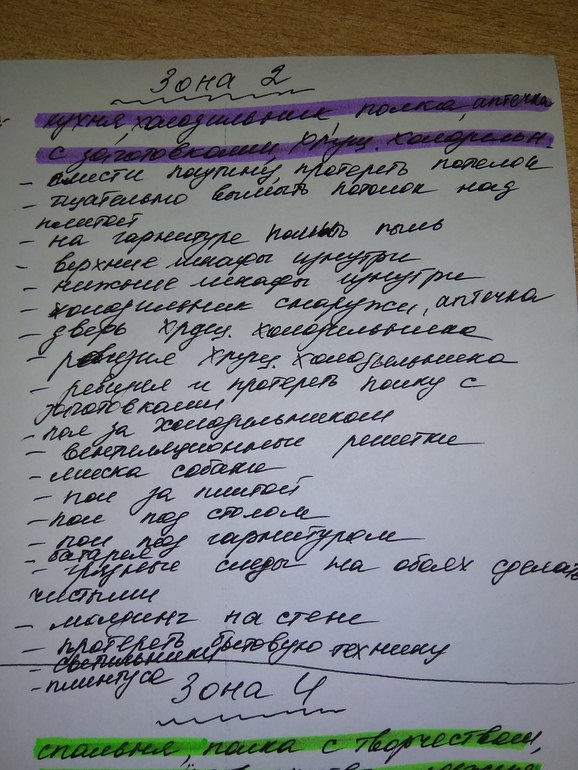 Зона 2
кухня, холодильник, полка, аптечка
с заготовками, хрущ. холодильн.
- смести паутину, протереть потолок
- тщательно вымыть потолок над
плитой
- на гарнитуре помыть пыль
- верхние шкафы изнутри
- нижние шкафы изнутри
- холодильник снаружи, аптечка
- дверь хрущ. холодильника
- ревизия хрущ. холодильника
- ревизия и протереть полку с
заготовками
- пол за холодильником
- вентиляционные решетки
- миска собаки
- пол за плитой
- пол под столом
- пол под гарнитуром
- батарея
- грязные следы на обоях сделать
чистыми
- молдинг на стене
- протереть бытовую технику
- светильники
- плинтуса
Зона 4
спальня, полка с творчеством,